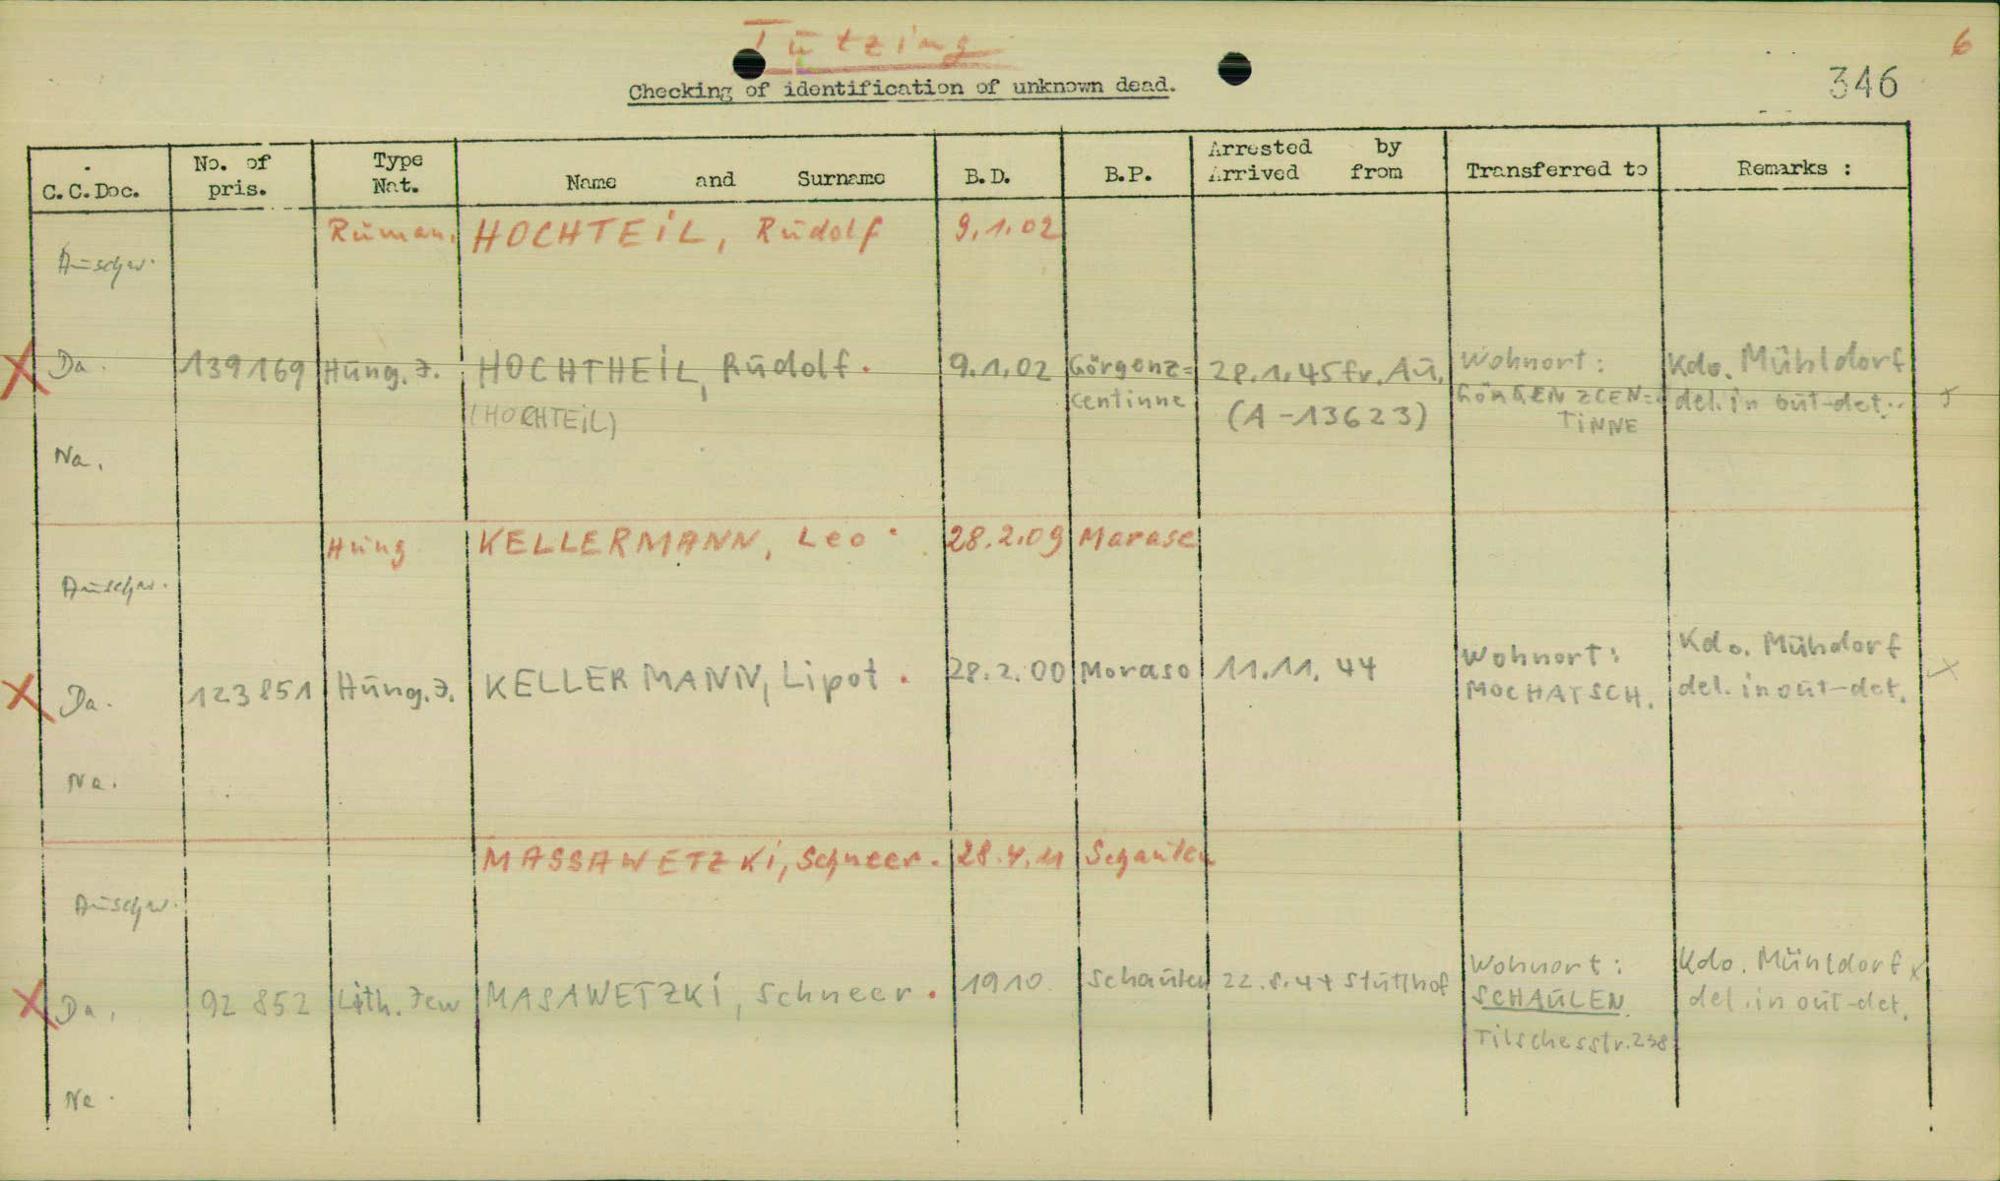 Tutzing
6
Checking of identification of unknown dead.
346
C.C.Doc. No. of pris. Type Nat. Name and Surname B.D. B.P. Arrested by Arrived from Transferred to Remarks :
Ruman. HOCHTEIL, Rudolf 9.1.02
Auschw.
Da. 139169 Hung. J. HOCHTHEIL, Rudolf. 9.1.02 Görgenz= 28.1.45 fr. Au. Wohnort: Kdo. Mühldorf
(HOCHTEIL) centinne (A-13623) GÖRGENZCEN= del. in out-det.
TINNE
Na.
Hung KELLERMANN, Leo 28.2.09 Marase
Auschw.
Da. 123851 Hung. J. KELLERMANN, Lipot. 28.2.00 Moraso 11.11.44 Wohnort: Kdo. Mühdorf
MOCHATSCH. del. in out-det.
Na.
MASSAWETZKI, Schneer. 28.4.11 Schaulen
Auschw.
Da. 92 852 Lith. Jew MASAWETZKI, Schneer. 1910. Schaulen 22.8.44 Stutthof Wohnort: Kdo. Mühldorf
SCHAULEN del. in out-det.
Tilschesstr. 238
Na.